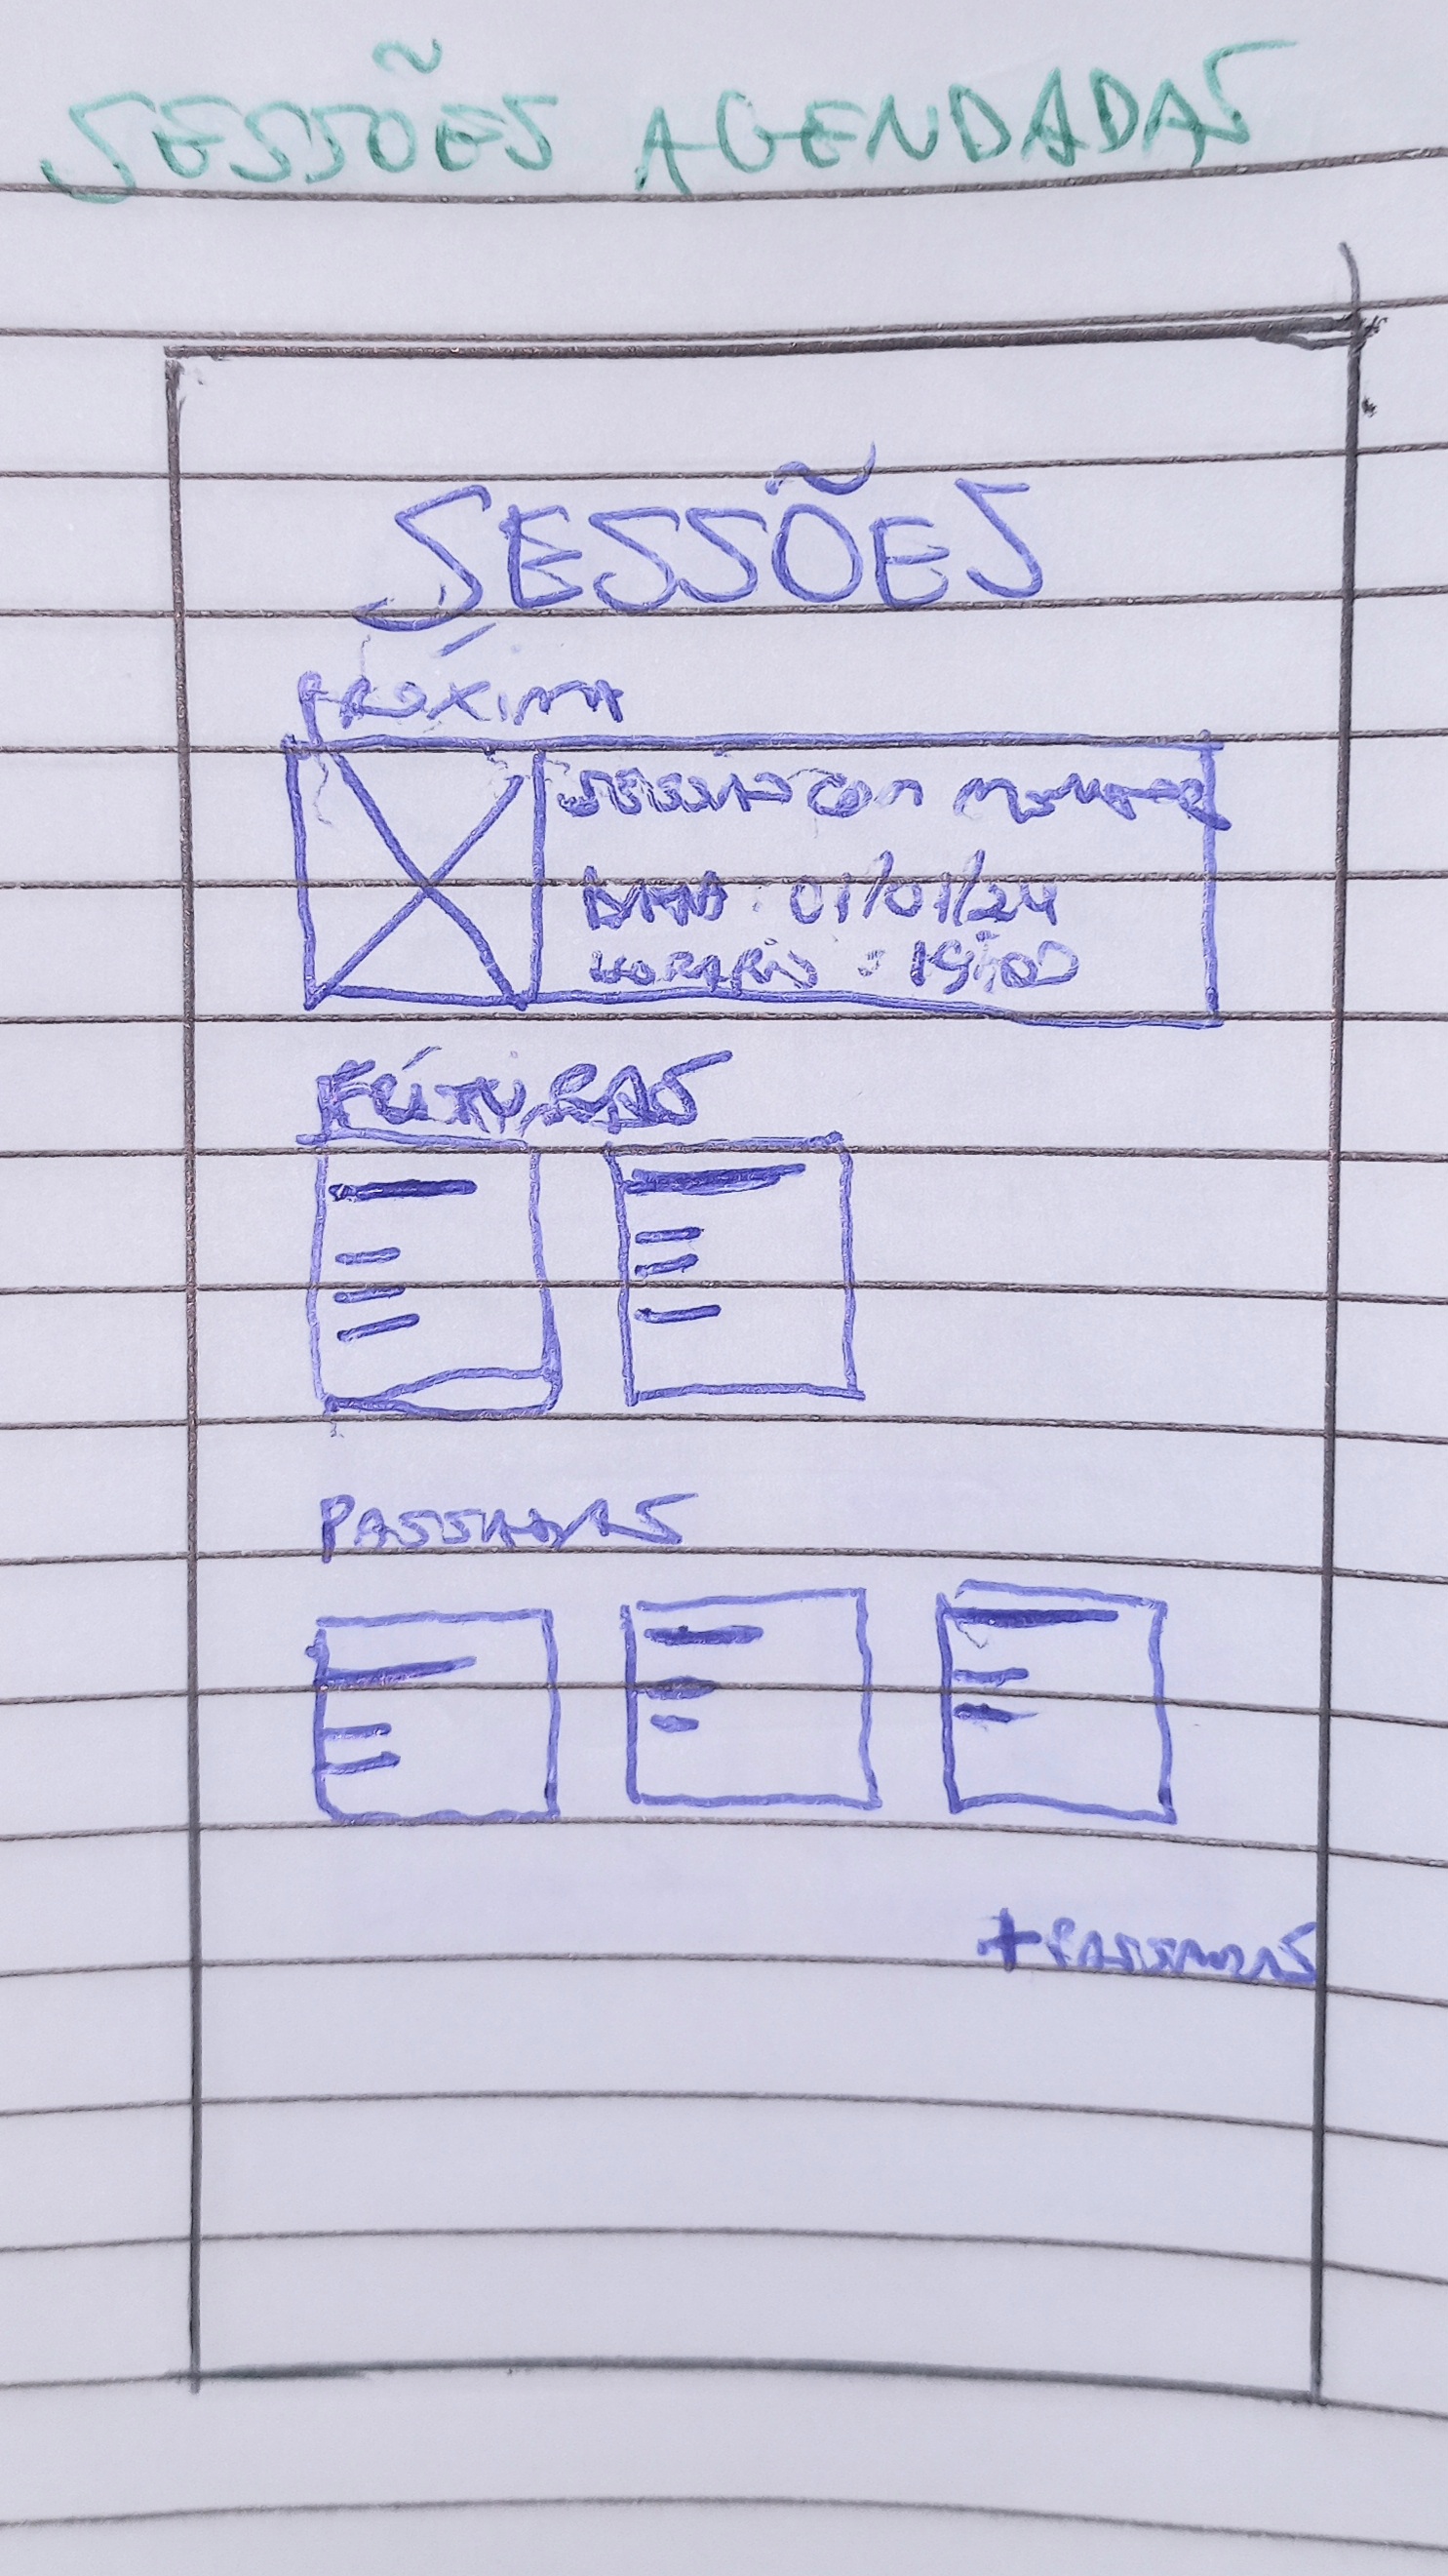 SESSÕES AGENDADAS
SESSÕES
PRÓXIMA
SESSÃO COM
DATA : 01/01/24
HORÁRIO : 19:00
FUTURAS
PASSADAS
+ PASSADAS